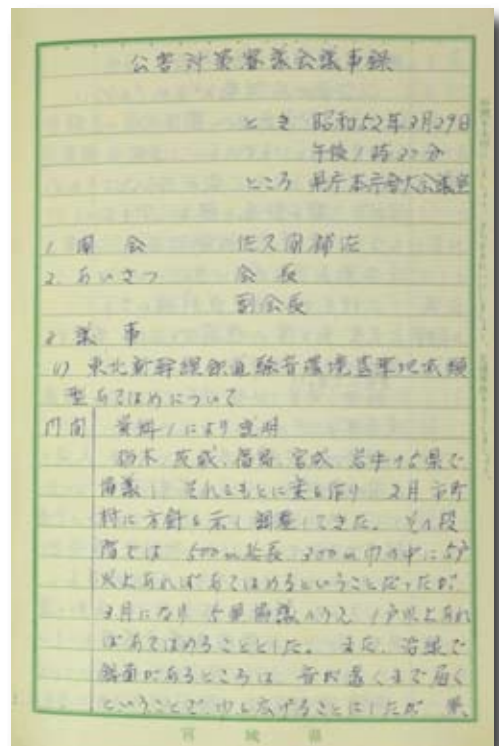 公害対策審議会議事録
とき 昭和52年3月29日
午後1時 分
ところ 県庁本庁舎大会議室
1. 開会 佐久間補佐
2. あいさつ 会長
副会長
3 議事
1) 東北新幹線鉄道騒音環境基準地域類
型あてはめについて
資料1により説明
栃木 茨城、福島 宮城 岩手の5県で
協議し それをもとに案を作り 2月 市町
村に方針を示し調整してきた。その段
階では 500m延長 300m巾の中に5戸
以上あればあてはめるということだったが
3月になり 5県協議のうえ 1戸以上あれ
ばあてはめることとした。また、沿線で
斜面があるところは 音が遠くまで届く
ということで、巾を広げることにしたが 果、
宮城県